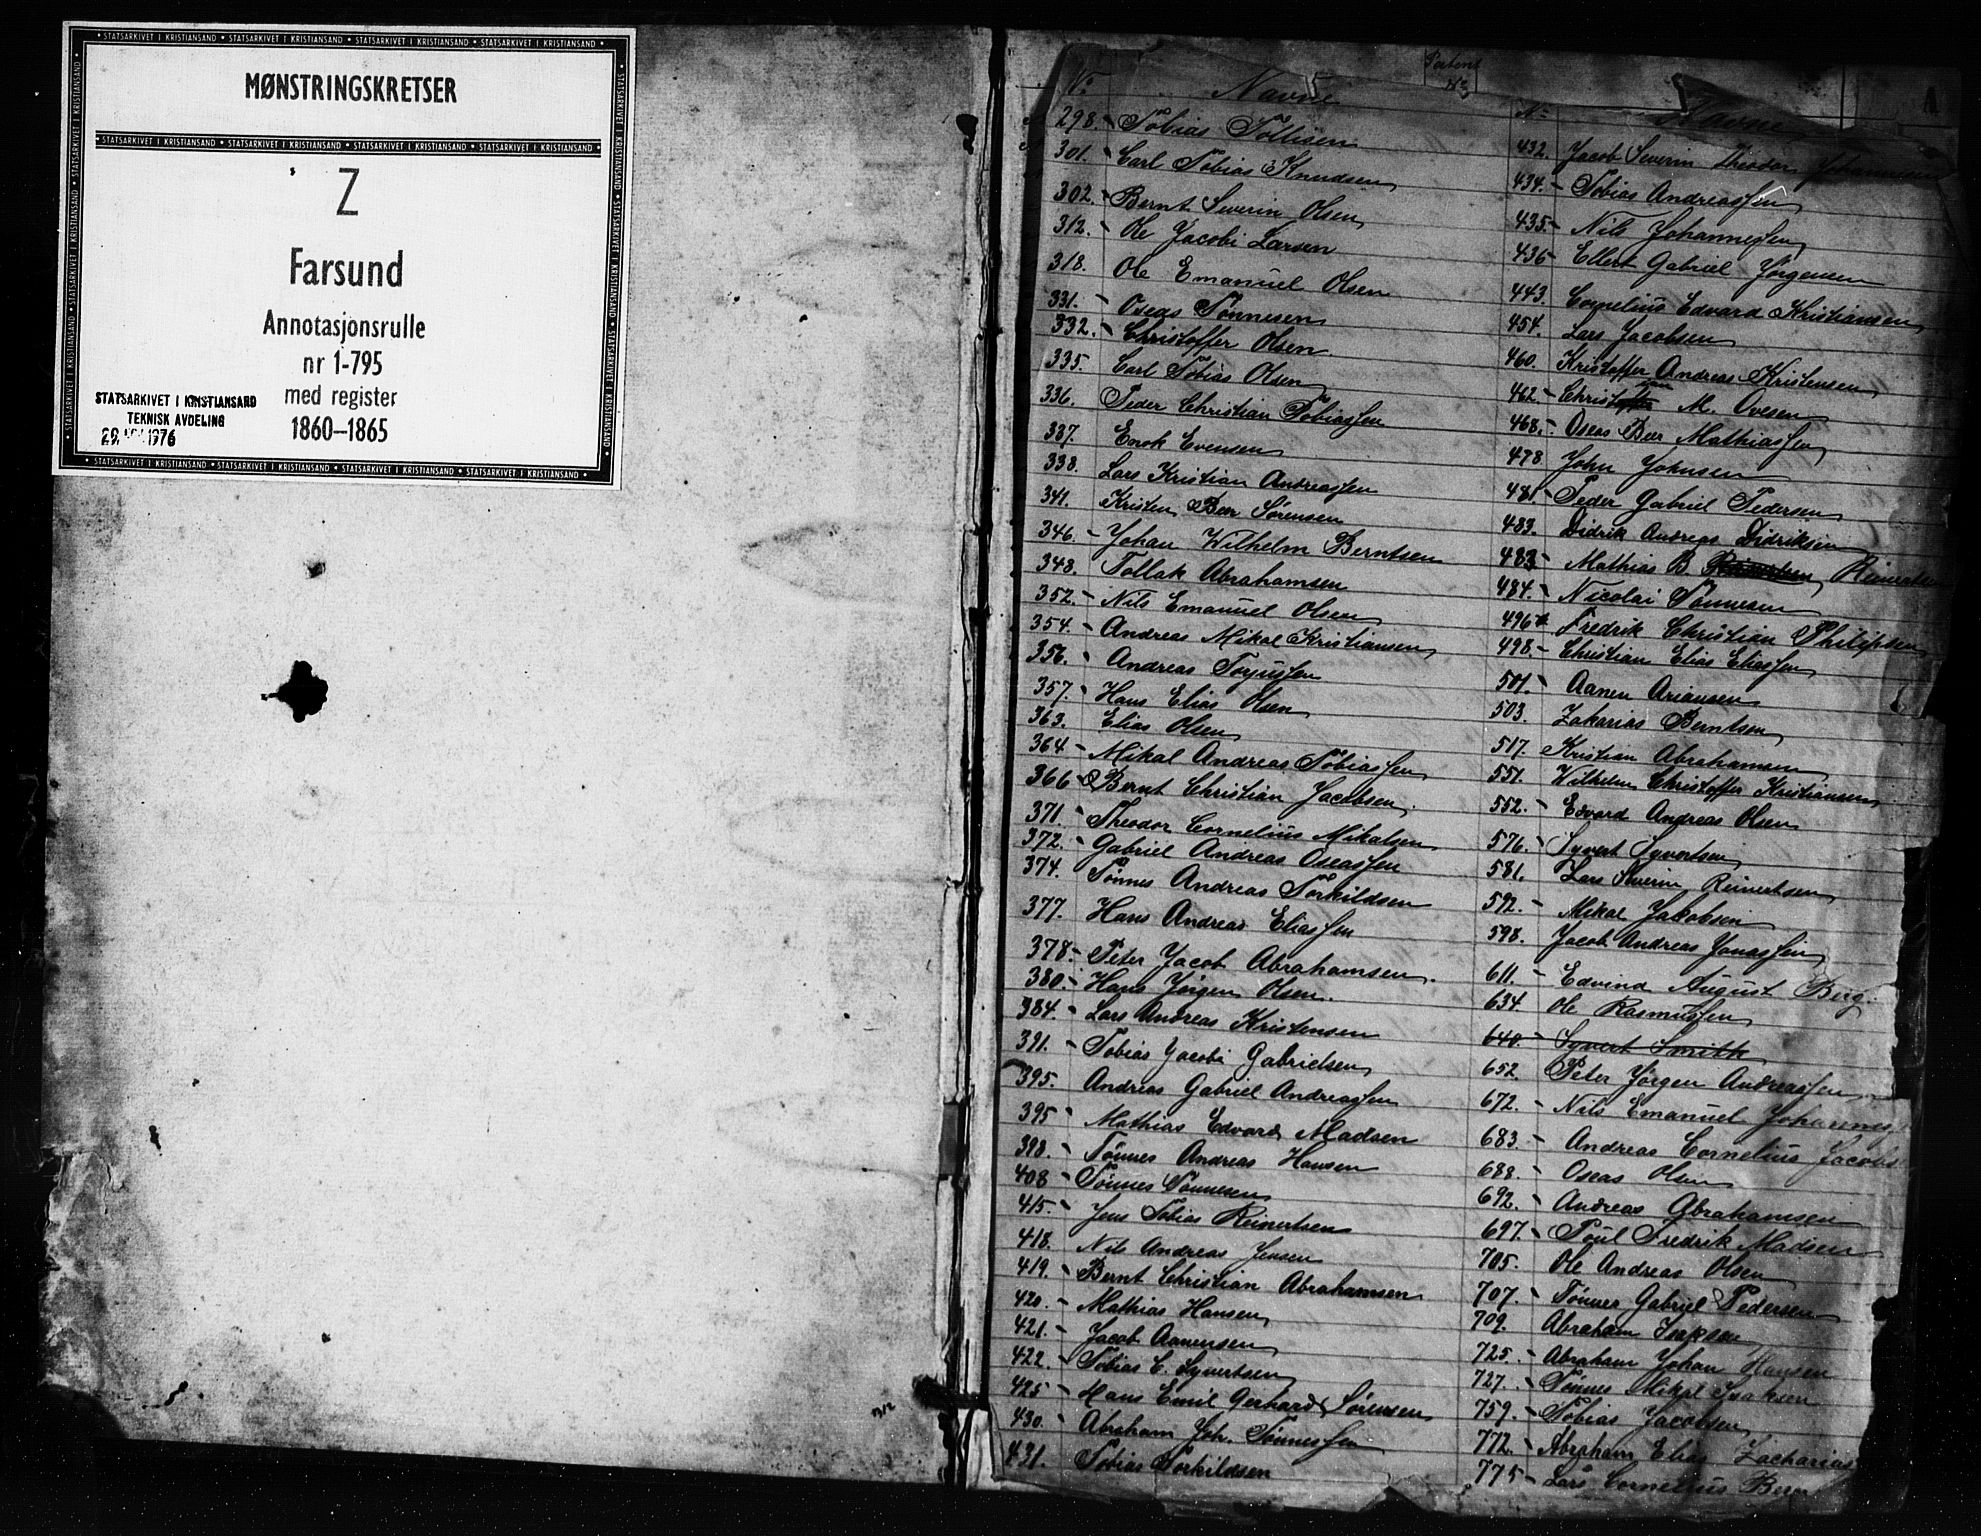 MØNSTRINGSKRETSER
Z
Farsund
Annotasjonsrulle
nr 1-795
med register
1860-1865
STATSARKIVET I KRISTIANSAND
TEKNISK AVDELING
1976
312
No Navne
298. Tobias Tollisen
301. Carl Tobias Knudsen
302. Bernt Severin Olsen
312. Ole Jacobi Larsen
318. Ole Emanuel Olsen
331. Oseas Tønnesen
332. Christoffer Olsen
335. Carl Tobias Olsen
336. Peder Christian Tobiassen
337. Enok Evensen
338. Lars Kristian Andreassen
341. Kristen Beer Sørensen
346. Johan Wilhelm Berntsen
348. Tollak Abrahamsen
352. Nils Emanuel Olsen
354. Andreas Mikal Kristiansen
356. Andreas Torjussen
357. Hans Elias Olsen
363. Elias Olsen
364 Mikal Andreas Tobiassen
366 Bernt Christian Jacobsen
371. Theodor Cornelius Mikalsen
372. Gabriel Andreas Oseassen
374. Tønnes Andreas Torkildsen
377. Hans Andreas Eliassen
378. Peter Jacob Abrahamsen
380. Hans Jørgen Olsen
384. Lars Andreas Kristensen
391. Tobias Jacobi Gabrielsen
395. Andreas Gabriel Andreassen
395 Mathias Edvard Madsen
398. Tønnes Andreas Hansen
408 Tønnes Tønnesen
415. Jens Tobias Reinertsen
418. Nils Andreas Jensen
419. Bernt Christian Abrahamsen
420. Mathias Hansen
421. Jacob Aanensen
422. Tobias C. Syvertsen
425 Hans Emil Gerhard Sørensen
430. Abraham Joh. Tønnessen
431. Tobias Torkildsen
Patent
No
No Navne
A
432. Jacob Severin Theodor Johannesen
434. Tobias Andreassen
435. Nils Johannessen
436 Ellert Gabriel Jørgensen
443. Cornelius Edvard Kristiansen
454. Lars Jacobsen
460. Kristoffer Andreas Kristensen
462 M. Ovesen
468. Oseas Beer Mathiassen
478 John Johnsen
481 Peder Gabriel Pedersen
483. Didrik Andreas Didriksen
483 Mathias B. Reinertsen
484. Nicolai Tønnesen
496 Fredrik Christian Philipsen
498. Christian Elias Eliassen
501. Aanen Ariansen
503. Zakarias Berntsen
517. Kristian Abrahamsen
551. Wilhelm Christoffer Kristiansen
552. Edvard Andreas Olsen
576. Syvert Syvertsen
581. Lars Severin Reinertsen
592. Mikal Jakobsen
598. Jacob Andreas Jonassen
611. Edvind August Berg
634. Ole Rasmussen
640. Syvert Smith
652. Peter Jørgen Andreassen
672. Nils Emanuel Johannes
683. Andreas Cornelius Jacobs
688. Oseas Olsen
692. Andreas Abrahamsen
697. Poul Fredrik Madsen
705. Ole Andreas Olsen
707. Tønnes Gabriel Pedersen
709. Abraham Isaksen
725. Abraham Johan Hansen
727. Tønnes Mikal Isaksen
759. Tobias Jacobsen
772. Abraham Elias Zacharias
775 Lars Cornelius Bern